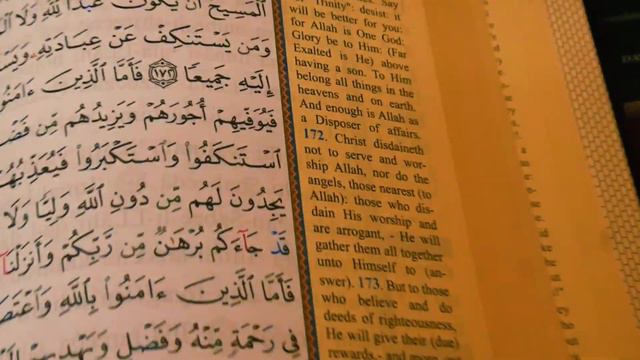 ٱلْمَسِيحُ أَن يَكُونَ عَبْدًا لِّلَّهِ وَلَا
وَمَن يَسْتَنكِفْ عَنْ عِبَادَتِهِۦ
إِلَيْهِ جَمِيعًا ١٧٢ فَأَمَّا ٱلَّذِينَ ءَامَنُوا
فَيُوَفِّيهِمْ أُجُورَهُمْ وَيَزِيدُهُم مِّن
ٱسْتَنكَفُوا۟ وَٱسْتَكْبَرُوا۟ فَيُعَذِّبُهُ
يَجِدُونَ لَهُم مِّن دُونِ ٱللَّهِ وَلِيًّا وَلَا
قَدْ جَآءَكُم بُرْهَٰنٌ مِّن رَّبِّكُمْ وَأَنزَلْنَا
فَأَمَّا ٱلَّذِينَ ءَامَنُوا۟ بِٱللَّهِ وَٱعْتَصَ
فِى رَحْمَةٍ مِّنْهُ وَفَضْلٍ وَيَهْدِيهِمْ
Say
"Trinity": desist: it
will be better for you:
for Allah is One God:
Glory be to Him: (Far
Exalted is He) above
having a son. To Him
belong all things in the
heavens and on earth.
And enough is Allah as
a Disposer of affairs.
172. Christ disdaineth
not to serve and wor-
ship Allah, nor do the
angels, those nearest (to
Allah): those who dis-
dain His worship and
are arrogant, - He will
gather them all together
unto Himself to (an-
swer). 173. But to those
who believe and do
deeds of righteousness,
He will give their (due)
rewards,- and more